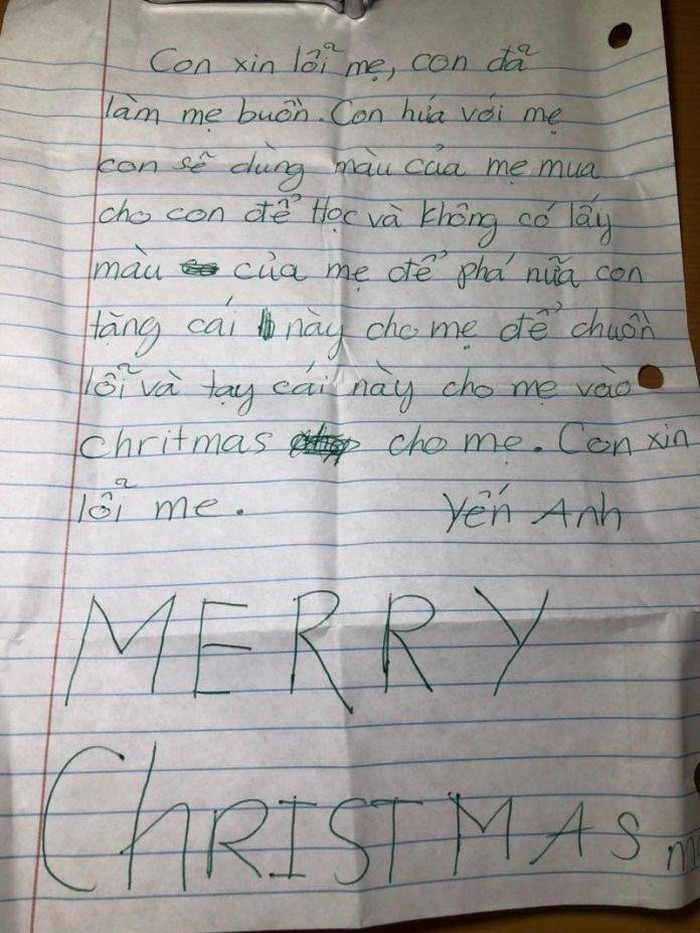 Con xin lỗĩ mẹ, con đã
làm mẹ buồn. Con hứa với mẹ
con sẽ dùng màu của mẹ mua
cho con để Học và không có lấy
màu của mẹ để phá nữa con
tặng cái này cho mẹ để chuồn
lỗĩ và tạy cái này cho mẹ vào
chritmas cho mẹ. Con xin
lỗĩ me. Yến Anh
MERRY
ChRISTMAS